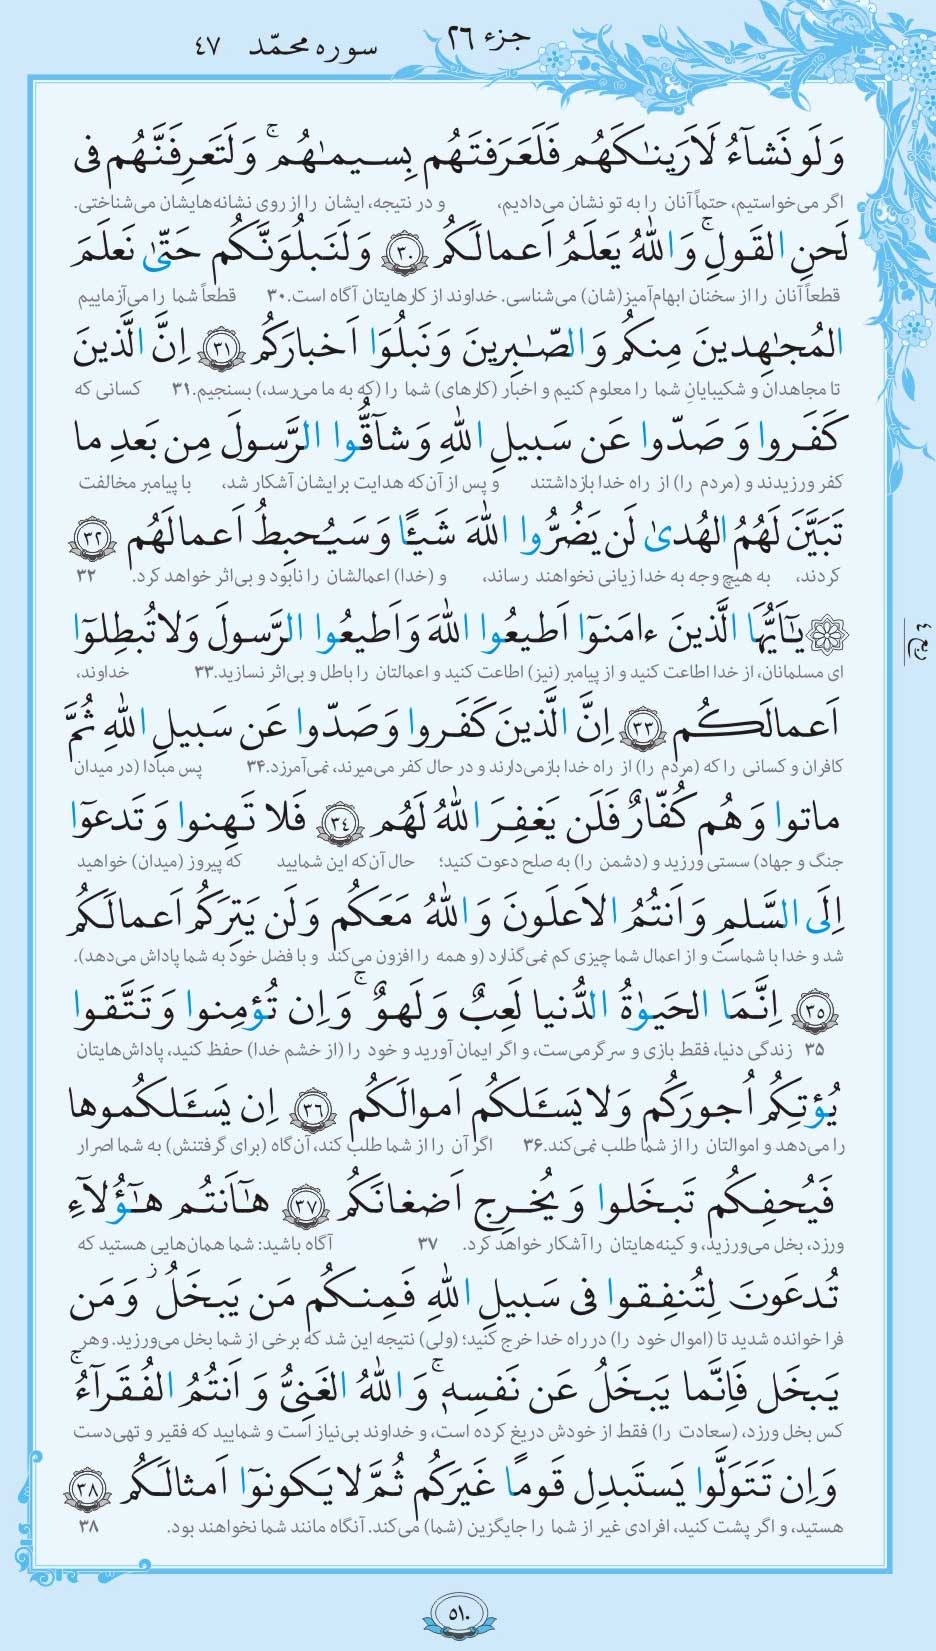 جزء ۲۶
سوره محمّد ۴۷
وَلَو نَشآءُ لَاَرَينٰكَهُم فَلَعَرَفتَهُم بِسيمٰهُم ۚ وَلَتَعرِفَنَّهُم فى
اگر می‌خواستیم، حتماً آنان را به تو نشان می‌دادیم، و در نتیجه، ایشان را از روی نشانه‌هایشان می‌شناختی.
لَحنِ القَولِ ۚ وَاللهُ يَعلَمُ اَعمالَكُم ﴿۳۰﴾ وَلَنَبلُوَنَّكُم حَتّىٰ نَعلَمَ
قطعاً آنان را از سخنان ابهام‌آمیز(شان) می‌شناسی. خداوند از کارهایتان آگاه است.۳۰ قطعاً شما را می‌آزماییم
المُجٰهِدينَ مِنكُم وَالصّٰبِرينَ وَنَبلُوَا اَخبارَكُم ﴿۳۱﴾ اِنَّ الَّذينَ
تا مجاهدان و شکیبایانِ شما را معلوم کنیم و اخبار (کارهای) شما را (که به ما می‌رسد،) بسنجیم.۳۱ کسانی که
كَفَروا وَصَدّوا عَن سَبيلِ اللهِ وَشآقُّوا الرَّسولَ مِن بَعدِ ما
کفر ورزیدند و (مردم را) از راه خدا بازداشتند و پس از آن‌که هدایت برایشان آشکار شد، با پیامبر مخالفت
تَبَيَّنَ لَهُمُ الهُدىٰ لَن يَضُرُّوا اللهَ شَيـًٔا وَسَيُحبِطُ اَعمالَهُم ﴿۳۲﴾
کردند، به هیچ وجه به خدا زیانی نخواهند رساند، و (خدا) اعمالشان را نابود و بی‌اثر خواهد کرد. ۳۲
يٰٓاَيُّهَا الَّذينَ ءامَنوٓا اَطيعُوا اللهَ وَاَطيعُوا الرَّسولَ وَلا تُبطِلوٓا
ای مسلمانان، از خدا اطاعت کنید و از پیامبر (نیز) اطاعت کنید و اعمالتان را باطل و بی‌اثر نسازید.۳۳ خداوند،
ربع ۴
اَعمالَكُم ﴿۳۳﴾ اِنَّ الَّذينَ كَفَروا وَصَدّوا عَن سَبيلِ اللهِ ثُمَّ
کافران و کسانی را که (مردم را) از راه خدا بازمی‌دارند و در حال کفر می‌میرند، نمی‌آمرزد.۳۴ پس مبادا (در میدان
ماتوا وَهُم كُفّارٌ فَلَن يَغفِرَ اللهُ لَهُم ﴿۳۴﴾ فَلا تَهِنوا وَتَدعوٓا
جنگ و جهاد) سستی ورزید و (دشمن را) به صلح دعوت کنید؛ حال آن‌که این شمایید که پیروز (میدان) خواهید
اِلَى السَّلمِ وَاَنتُمُ الاَعلَونَ وَاللهُ مَعَكُم وَلَن يَتِرَكُم اَعمالَكُم
شد و خدا با شماست و از اعمال شما چیزی کم نمی‌گذارد (و همه را افزون می‌کند و با فضل خود به شما پاداش می‌دهد).
﴿۳۵﴾ اِنَّمَا الحَيوٰةُ الدُّنيا لَعِبٌ وَلَهوٌ ۚ وَاِن تُؤمِنوا وَتَتَّقوا
۳۵ زندگی دنیا، فقط بازی و سرگرمی‌ست، و اگر ایمان آورید و خود را (از خشم خدا) حفظ کنید، پاداش‌هایتان
يُؤتِكُم اُجورَكُم وَلا يَسـَٔلكُم اَموالَكُم ﴿۳۶﴾ اِن يَسـَٔلكُموها
را می‌دهد و اموالتان را از شما طلب نمی‌کند.۳۶ اگر آن را از شما طلب کند، آن‌گاه (برای گرفتنش) به شما اصرار
فَيُحفِكُم تَبخَلوا وَيُخرِج اَضغانَكُم ﴿۳۷﴾ هٰٓاَنتُم هٰٓؤُلآءِ
ورزد، بخل می‌ورزید، و کینه‌هایتان را آشکار خواهد کرد. ۳۷ آگاه باشید: شما همان‌هایی هستید که
تُدعَونَ لِتُنفِقوا فى سَبيلِ اللهِ فَمِنكُم مَن يَبخَلُ ۖ وَمَن
فرا خوانده شدید تا (اموال خود را) در راه خدا خرج کنید؛ (ولی) نتیجه این شد که برخی از شما بخل می‌ورزید. وهر
يَبخَل فَاِنَّما يَبخَلُ عَن نَفسِهٖ ۚ وَاللهُ الغَنِىُّ وَاَنتُمُ الفُقَرآءُ ۚ
کس بخل ورزد، (سعادت را) فقط از خودش دریغ کرده است، و خداوند بی‌نیاز است و شمایید که فقیر و تهی‌دست
وَاِن تَتَوَلَّوا يَستَبدِل قَومًا غَيرَكُم ثُمَّ لا يَكونوٓا اَمثالَكُم ﴿۳۸﴾
هستید، و اگر پشت کنید، افرادی غیر از شما را جایگزین (شما) می‌کند. آنگاه مانند شما نخواهند بود. ۳۸
۵۱۰